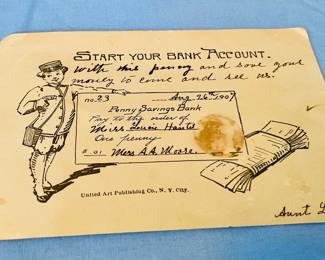 START YOUR BANK ACCOUNT.
With this penny and save your
money to come and see us.
No. 23 Aug. 26th 1907
Penny Savings Bank
Pay to the order of
Miss
One penny
$ .01 Mrs A.A. Moore
United Art Publishing Co., N. Y. City.
Aunt